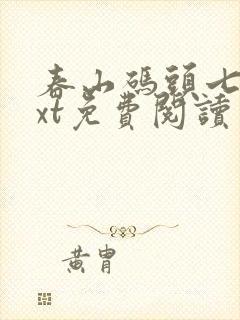 春山碼頭七
xt免費閱讀
黃胄